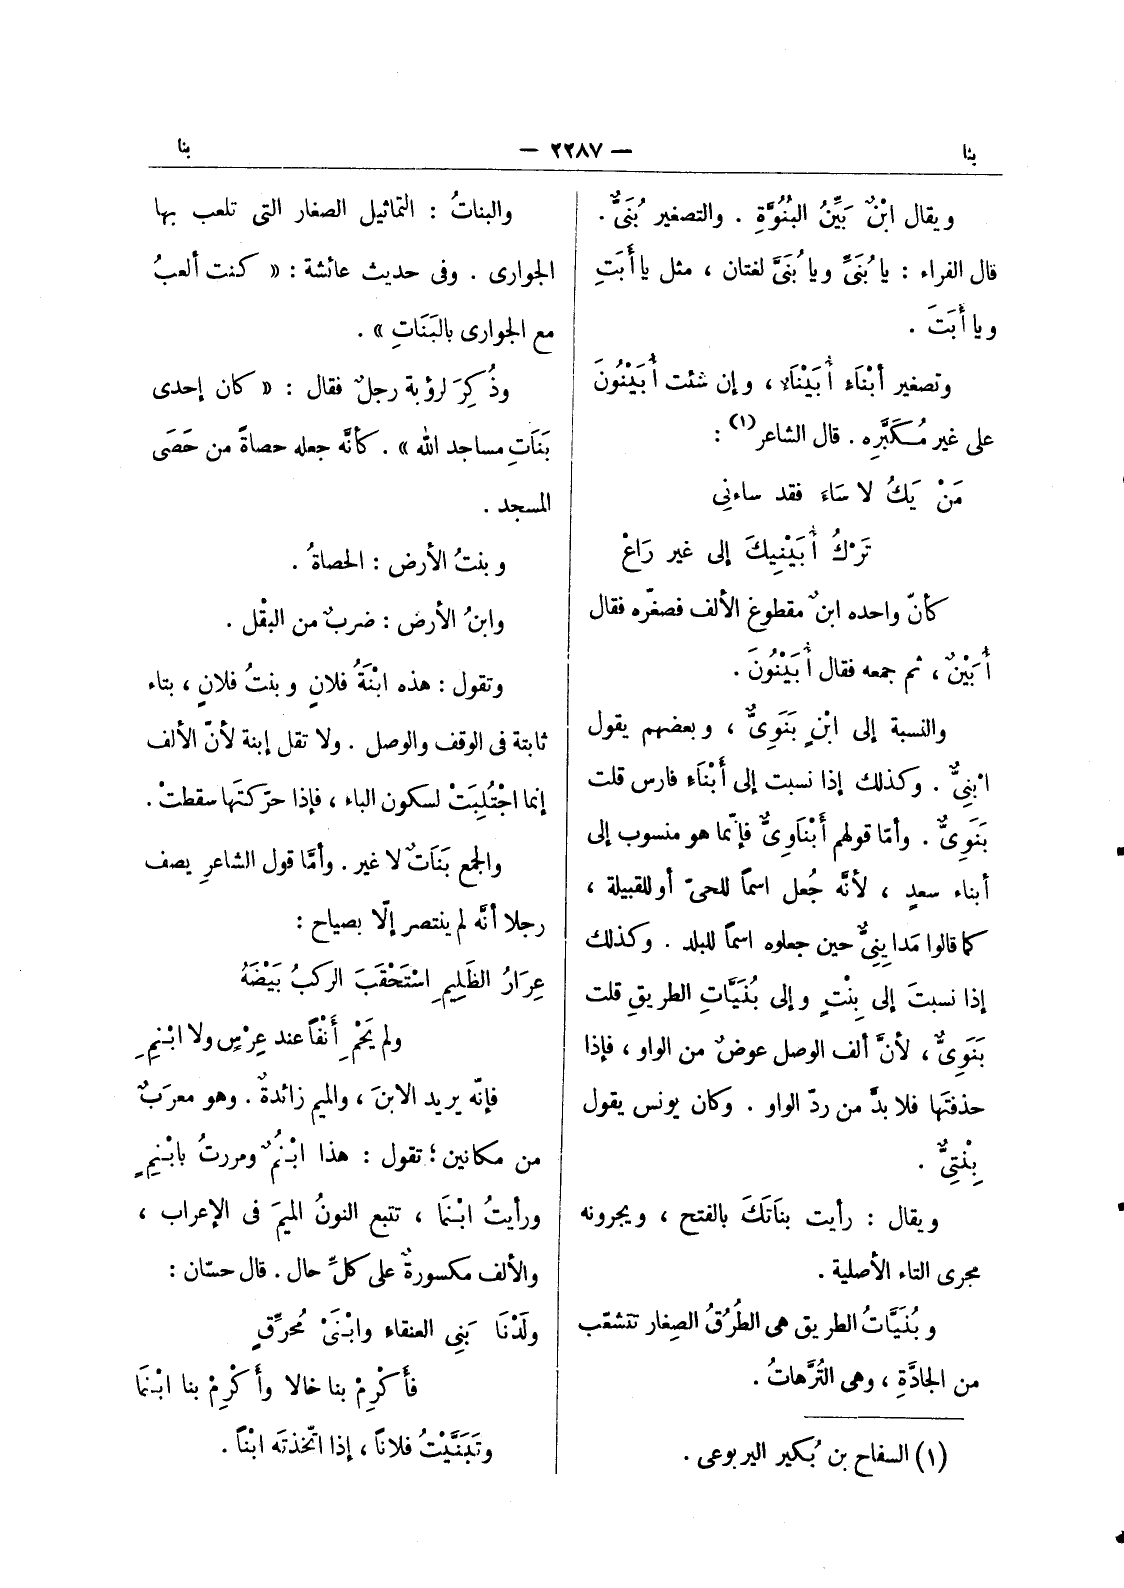 بنا — ٢٢٨٧ — بنا
ويقال ابْنٌ بَيِّنُ البُنُوَّةِ . والتصغير بُنَىٌّ .
قال الفراء : يا بُنَىِّ ويا بُنَىَّ لغتان ، مثل يا أَبَتِ
ويا أَبَتَ .
وتصغير أبْنَاءِ أُبَيْنَاء ، وإن شئت أُبَيْنُونَ
على غير مُكَبَّرِه . قال الشاعر(١) :
مَنْ يَكُ لا سَاءَ فقد ساءنِى
تَرْكُ أُبَيْنِيكَ إلى غير رَاعْ
كأنّ واحده ابنٌ مقطوع الألف فصغّره فقال
أُبَيْنٌ ، ثم جمعه فقال أُبَيْنُونَ .
والنسبة إلى ابْنٍ بَنَوِىٌّ ، وبعضهم يقول
ابْنِىٌّ . وكذلك إذا نسبت إلى أَبْنَاء فارس قلت
بَنَوِىٌّ . وأمّا قولهم أَبْنَاوِىٌّ فإنّما هو منسوب إلى
أبناء سعدٍ ، لأنَّه جُعل اسمًا للحىّ أو للقبيلة ،
كما قالوا مَدايِنِىٌّ حين جعلوه اسمًا للبلد . وكذلك
إذا نسبتَ إلى بِنْتٍ وإلى بُنَيَّاتِ الطريقِ قلت
بَنَوِىٌّ ، لأنَّ ألف الوصل عوضٌ من الواو ، فإذا
حذفتَها فلا بدَّ من ردّ الواو . وكان يونس يقول
بِنْتِىٌّ .
ويقال : رأيت بناتَكَ بالفتح ، ويجرونه
مجرى التاء الأصلية .
وبُنَيَّاتُ الطريق هى الطُرُقُ الصِغار تتشعّب
من الجادَّةِ ، وهى التُرَّهاتُ .
(١) السفاح بن بُكير اليربوعى .
والبناتُ : التماثيل الصغار التى تلعب بها
الجوارى . وفى حديث عائشة : « كنت ألعبُ
مع الجوارى بالبَنَاتِ » .
وذُكِرَ لرؤبة رجلٌ فقال : « كان إحدى
بَنَاتِ مساجد الله » . كأنَّه جعله حصاةً من حَصَى
المسجد .
وبنتُ الأرض : الحصاةُ .
وابنُ الأرض : ضربٌ من البقْل .
وتقول : هذه ابْنَةُ فلانٍ وبنتُ فلانٍ ، بتاء
ثابتة فى الوقف والوصل . ولا تقل إبنة لأنّ الألف
إنما اجْتُلِبَتْ لسكون الباء ، فإذا حرّكتَها سقطتْ .
والجمع بَنَاتٌ لا غير . وأمَّا قول الشاعرِ يصف
رجلا أنَّه لم ينتصر إلّا بصياح :
عِرَارُ الظَلِيمِ اسْتَحْقَبَ الركبُ بَيْضَهُ
ولم يَحْمِ أَنْفًا عند عِرْسٍ ولا ابْنِمِ
فإنّه يريد الابنَ ، والميم زائدةٌ . وهو معربٌ
من مكانين ؛ تقول : هذا ابْنُمٌ ومررتُ بابْنِمٍ
ورأيتُ ابْنَمًا ، تتبع النونُ الميمَ فى الإعراب ،
والألف مكسورةٌ على كلِّ حال . قال حسّان :
ولَدْنَا بَنِى العنقاء وابْنَىْ مُحرِّقٍ
فأَكْرِمْ بنا خالا وأَكْرِمْ بنا ابْنَمَا
وتَبَنَّيْتُ فلاناً ، إذا اتّخذتَه ابْنًا .